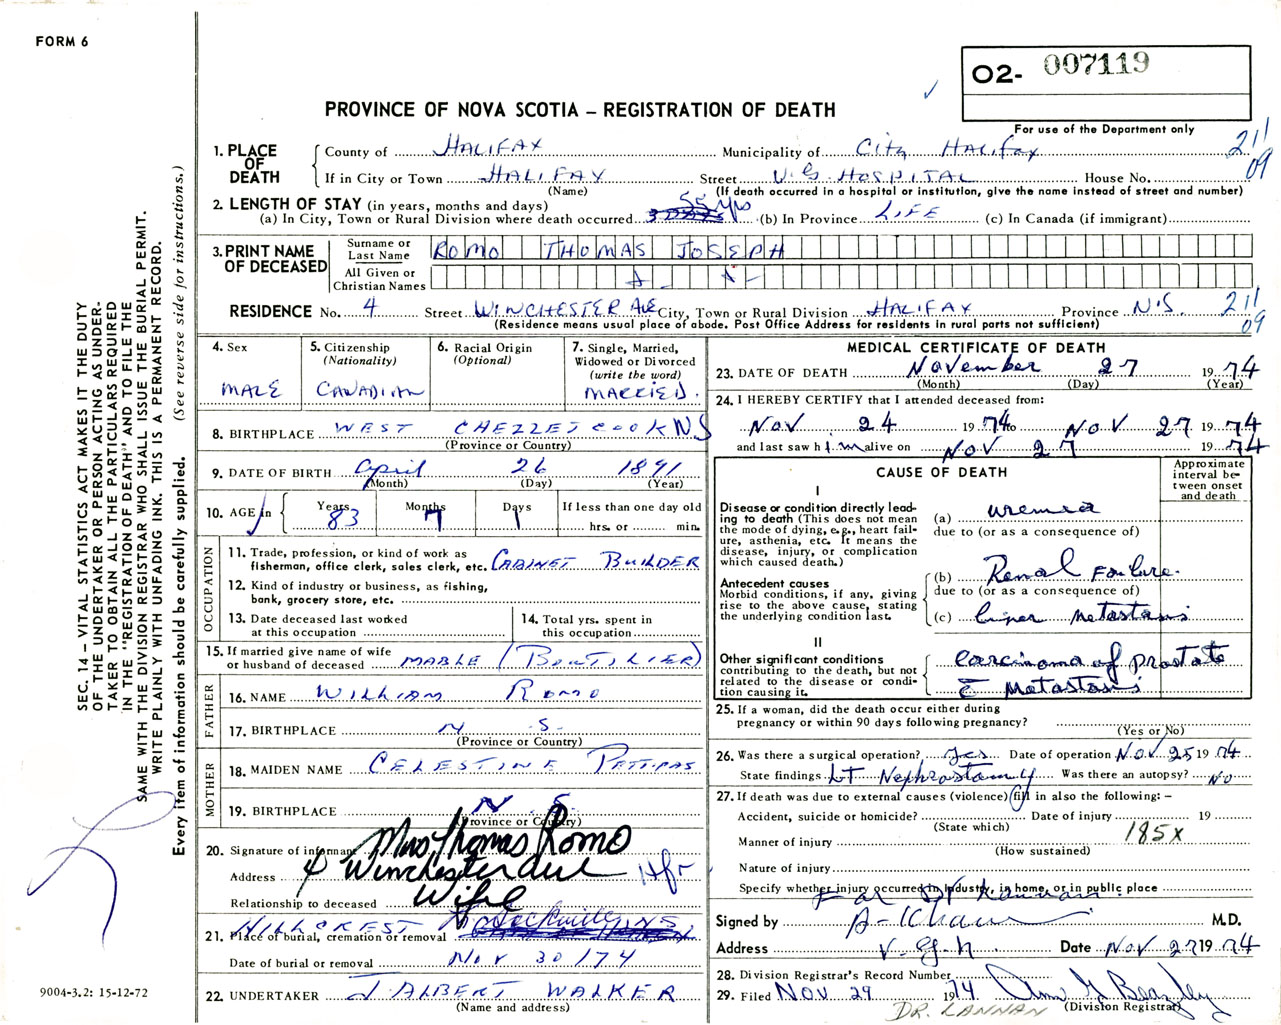 FORM 6
O2- 007119
PROVINCE OF NOVA SCOTIA – REGISTRATION OF DEATH
For use of the Department only
SEC. 14 – VITAL STATISTICS ACT MAKES IT THE DUTY
OF THE UNDERTAKER OR PERSON ACTING AS UNDER-
TAKER TO OBTAIN ALL THE PARTICULARS REQUIRED
IN THE "REGISTRATION OF DEATH" AND TO FILE THE
SAME WITH THE DIVISION REGISTRAR WHO SHALL ISSUE THE BURIAL PERMIT.
WRITE PLAINLY WITH UNFADING INK. THIS IS A PERMANENT RECORD.
Every item of information should be carefully supplied. (See reverse side for instructions.)
1. PLACE OF DEATH
County of HALIFAX Municipality of City HALIFAX 211
If in City or Town HALIFAX Street V.G. HOSPITAL House No. 09
(Name) (If death occurred in a hospital or institution, give the name instead of street and number)
2. LENGTH OF STAY (in years, months and days)
(a) In City, Town or Rural Division where death occurred 55 yrs (b) In Province LIFE (c) In Canada (if immigrant)
3. PRINT NAME OF DECEASED
Surname or Last Name ROMO THOMAS JOSEPH
All Given or Christian Names
RESIDENCE No. 4 Street WINCHESTER AVE City, Town or Rural Division HALIFAX Province N.S. 211
(Residence means usual place of abode. Post Office Address for residents in rural parts not sufficient) 09
4. Sex MALE
5. Citizenship (Nationality) CANADIAN
6. Racial Origin (Optional)
7. Single, Married, Widowed or Divorced (write the word) MARRIED.
8. BIRTHPLACE WEST CHEZZETCOOK NS
(Province or Country)
9. DATE OF BIRTH April 26 1891
(Month) (Day) (Year)
10. AGE in Years 83 Months 7 Days 1 If less than one day old hrs. or min.
OCCUPATION
11. Trade, profession, or kind of work as
fisherman, office clerk, sales clerk, etc. CABINET BUILDER
12. Kind of industry or business, as fishing,
bank, grocery store, etc.
13. Date deceased last worked
at this occupation
14. Total yrs. spent in
this occupation
15. If married give name of wife
or husband of deceased MABLE (BOUTILIER)
FATHER
16. NAME WILLIAM ROMO
17. BIRTHPLACE N.S.
(Province or Country)
MOTHER
18. MAIDEN NAME CELESTINE PETTIPAS
19. BIRTHPLACE N.S.
(Province or Country)
20. Signature of informant Mrs Thomas Romo
Address 4 Winchester Ave Hfx
Relationship to deceased Wife
HILLCREST Sackville NS
21. Place of burial, cremation or removal
Date of burial or removal NOV 30/74
22. UNDERTAKER J ALBERT WALKER
(Name and address)
9004-3.2: 15-12-72
MEDICAL CERTIFICATE OF DEATH
23. DATE OF DEATH November 27 1974
(Month) (Day) (Year)
24. I HEREBY CERTIFY that I attended deceased from:
Nov 24 1974 to Nov 27 1974
and last saw him alive on Nov 27 1974
CAUSE OF DEATH
Approximate interval be- tween onset and death
I
Disease or condition directly lead-
ing to death (This does not mean
the mode of dying, e.g., heart fail-
ure, asthenia, etc. It means the
disease, injury, or complication
which caused death.)
(a) uremia
due to (or as a consequence of)
Antecedent causes
Morbid conditions, if any, giving
rise to the above cause, stating
the underlying condition last.
(b) Renal Failure.
due to (or as a consequence of)
(c) liver metastasis
II
Other significant conditions
contributing to the death, but not
related to the disease or condi-
tion causing it.
Carcinoma of prostate
c̄ Metastasis
25. If a woman, did the death occur either during
pregnancy or within 90 days following pregnancy?
(Yes or No)
26. Was there a surgical operation? yes Date of operation Nov. 25 1974
State findings LT Nephrostomy Was there an autopsy? No
27. If death was due to external causes (violence) fill in also the following: –
Accident, suicide or homicide? Date of injury 19
(State which)
Manner of injury 185X
(How sustained)
Nature of injury
Specify whether injury occurred in Industry, in home, or in public place
For Dr Lannan
Signed by A- Khan M.D.
Address V.G.H. Date Nov 27 1974
28. Division Registrar's Record Number
29. Filed NOV 29 1974
(Division Registrar)
DR. LANNAN